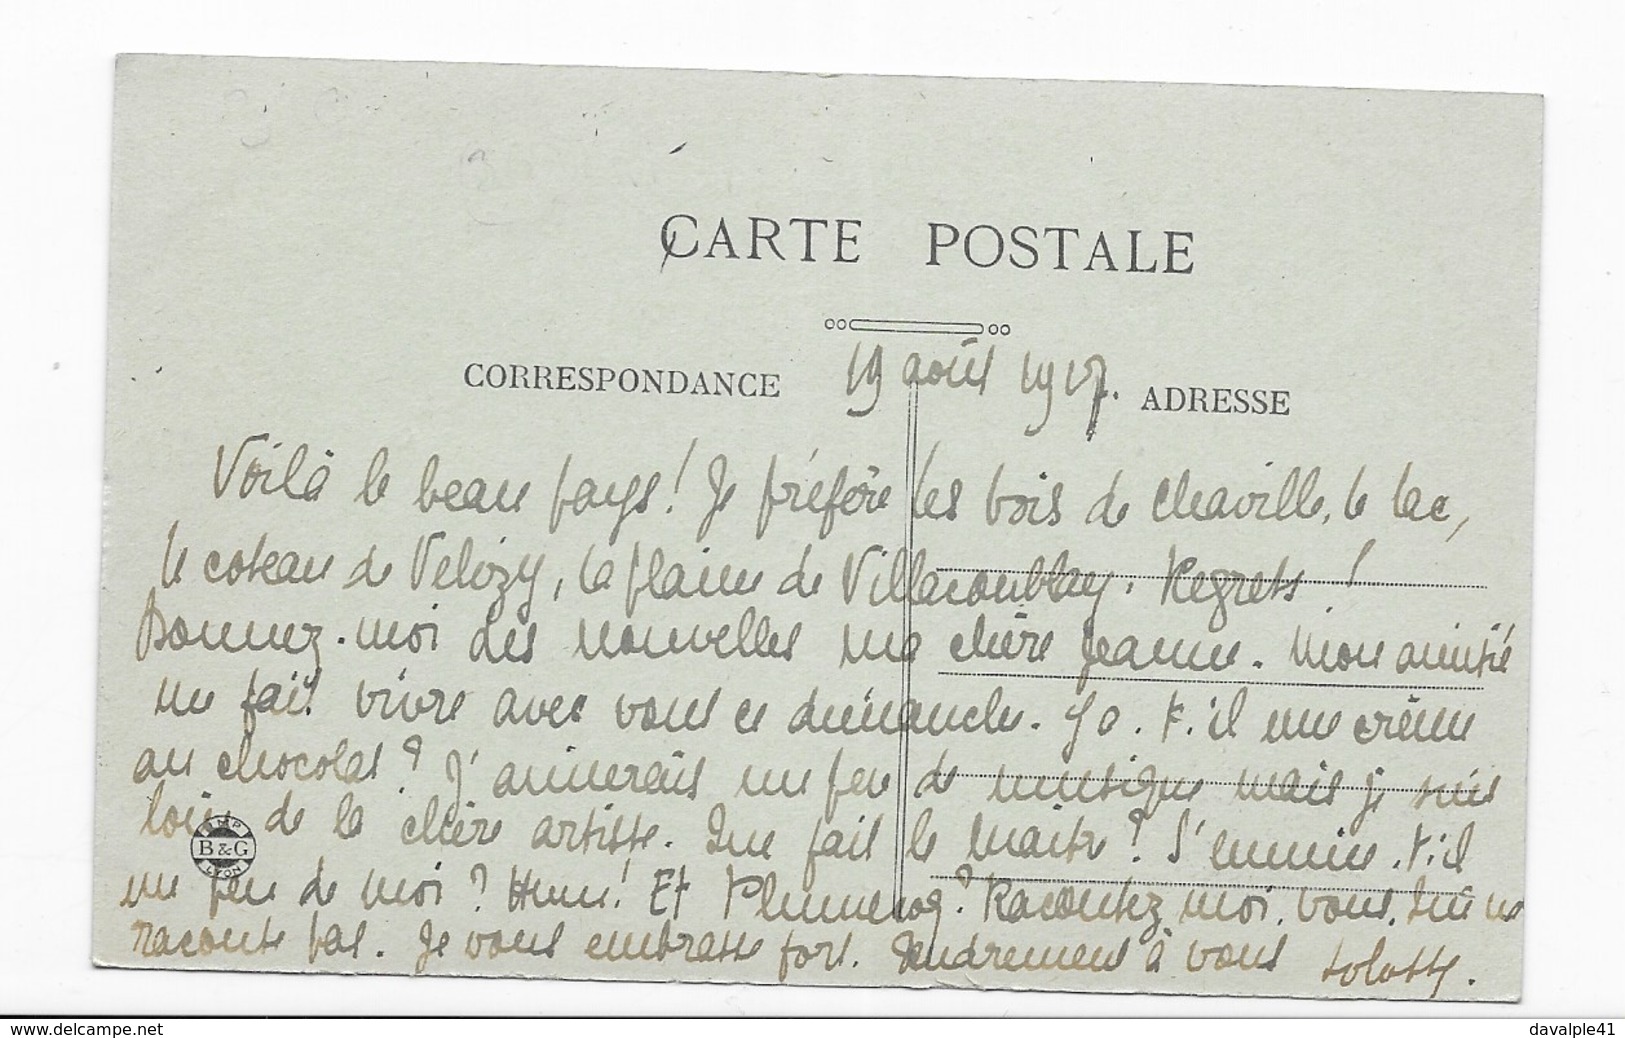 CARTE POSTALE
CORRESPONDANCE
19 août 1917.
ADRESSE
Voilà le beau pays! Je préfère les bois de Chaville, le lac,
le coteau de Velizy, la plaine de Villacoublay. Regrets!
Donnez-moi des nouvelles ma chère Jeanne. Mon amitié
me fait vivre avec vous ce dimanche. Y a-t-il une crème
au chocolat? J'aimerais un peu de musique mais je suis
loin de la chère artiste. Que fait le Maitre? S'ennuie-t-il
un peu de moi? Hum! Et ? Racontez moi, vous, lui ne
raconte pas. Je vous embrasse fort. Tendrement à vous
IMP
B & G
LYON
www.delcampe.net
davalple41